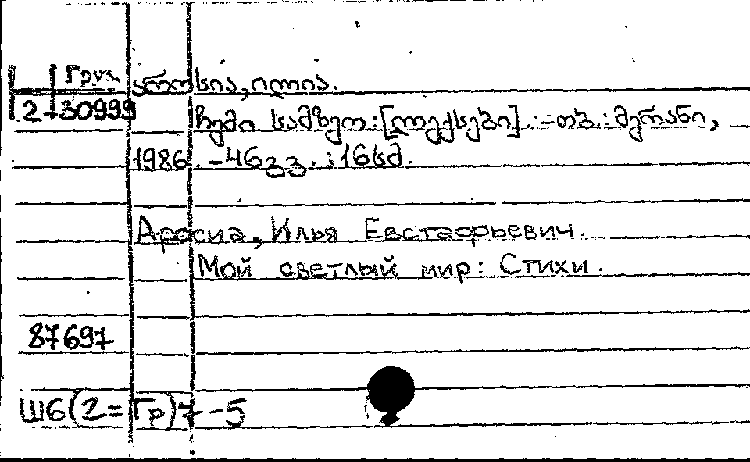 Груз. აროსია, ილია.
2-30999 ჩემი სამზეო: [ლექსები]. - თბ.: მერანი,
1986. - 46 გვ.: 16 სმ.
Аросиа, Илья Евстафьевич.
Мой светлый мир: Стихи.
87697
Ш6(2=Гр)7-5